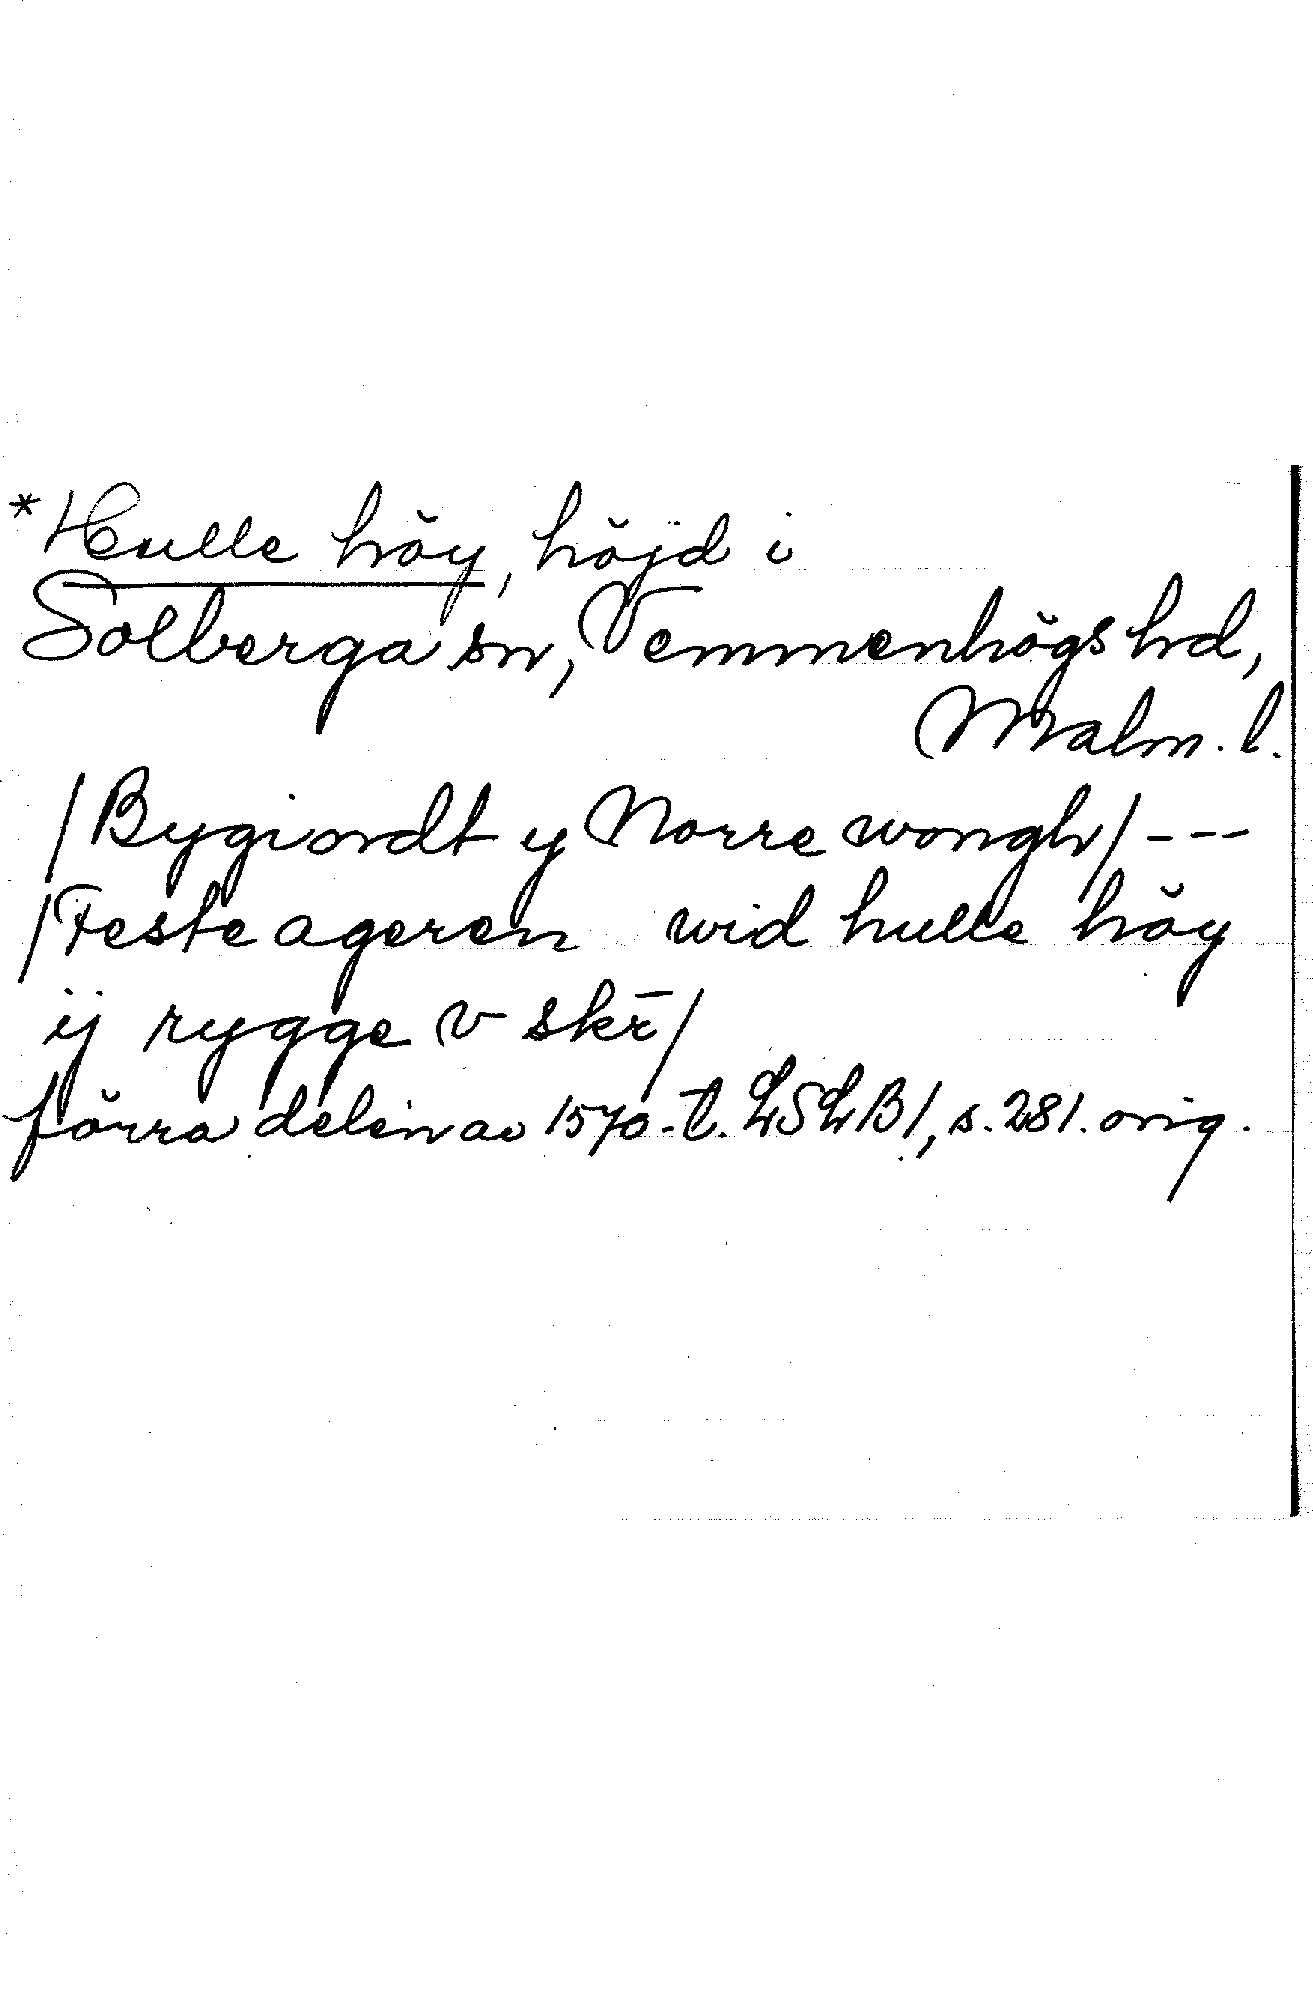 *Hulle höy, höjd i
Solberga sn, Vemmenhögs hd,
Malm. l.
/Bygiordt y Norre wongh/---
/Feste ageren wid hulle höy
ij rygge v skr̄/
förra delen av 1570-t. LSLB1, s. 281. orig.